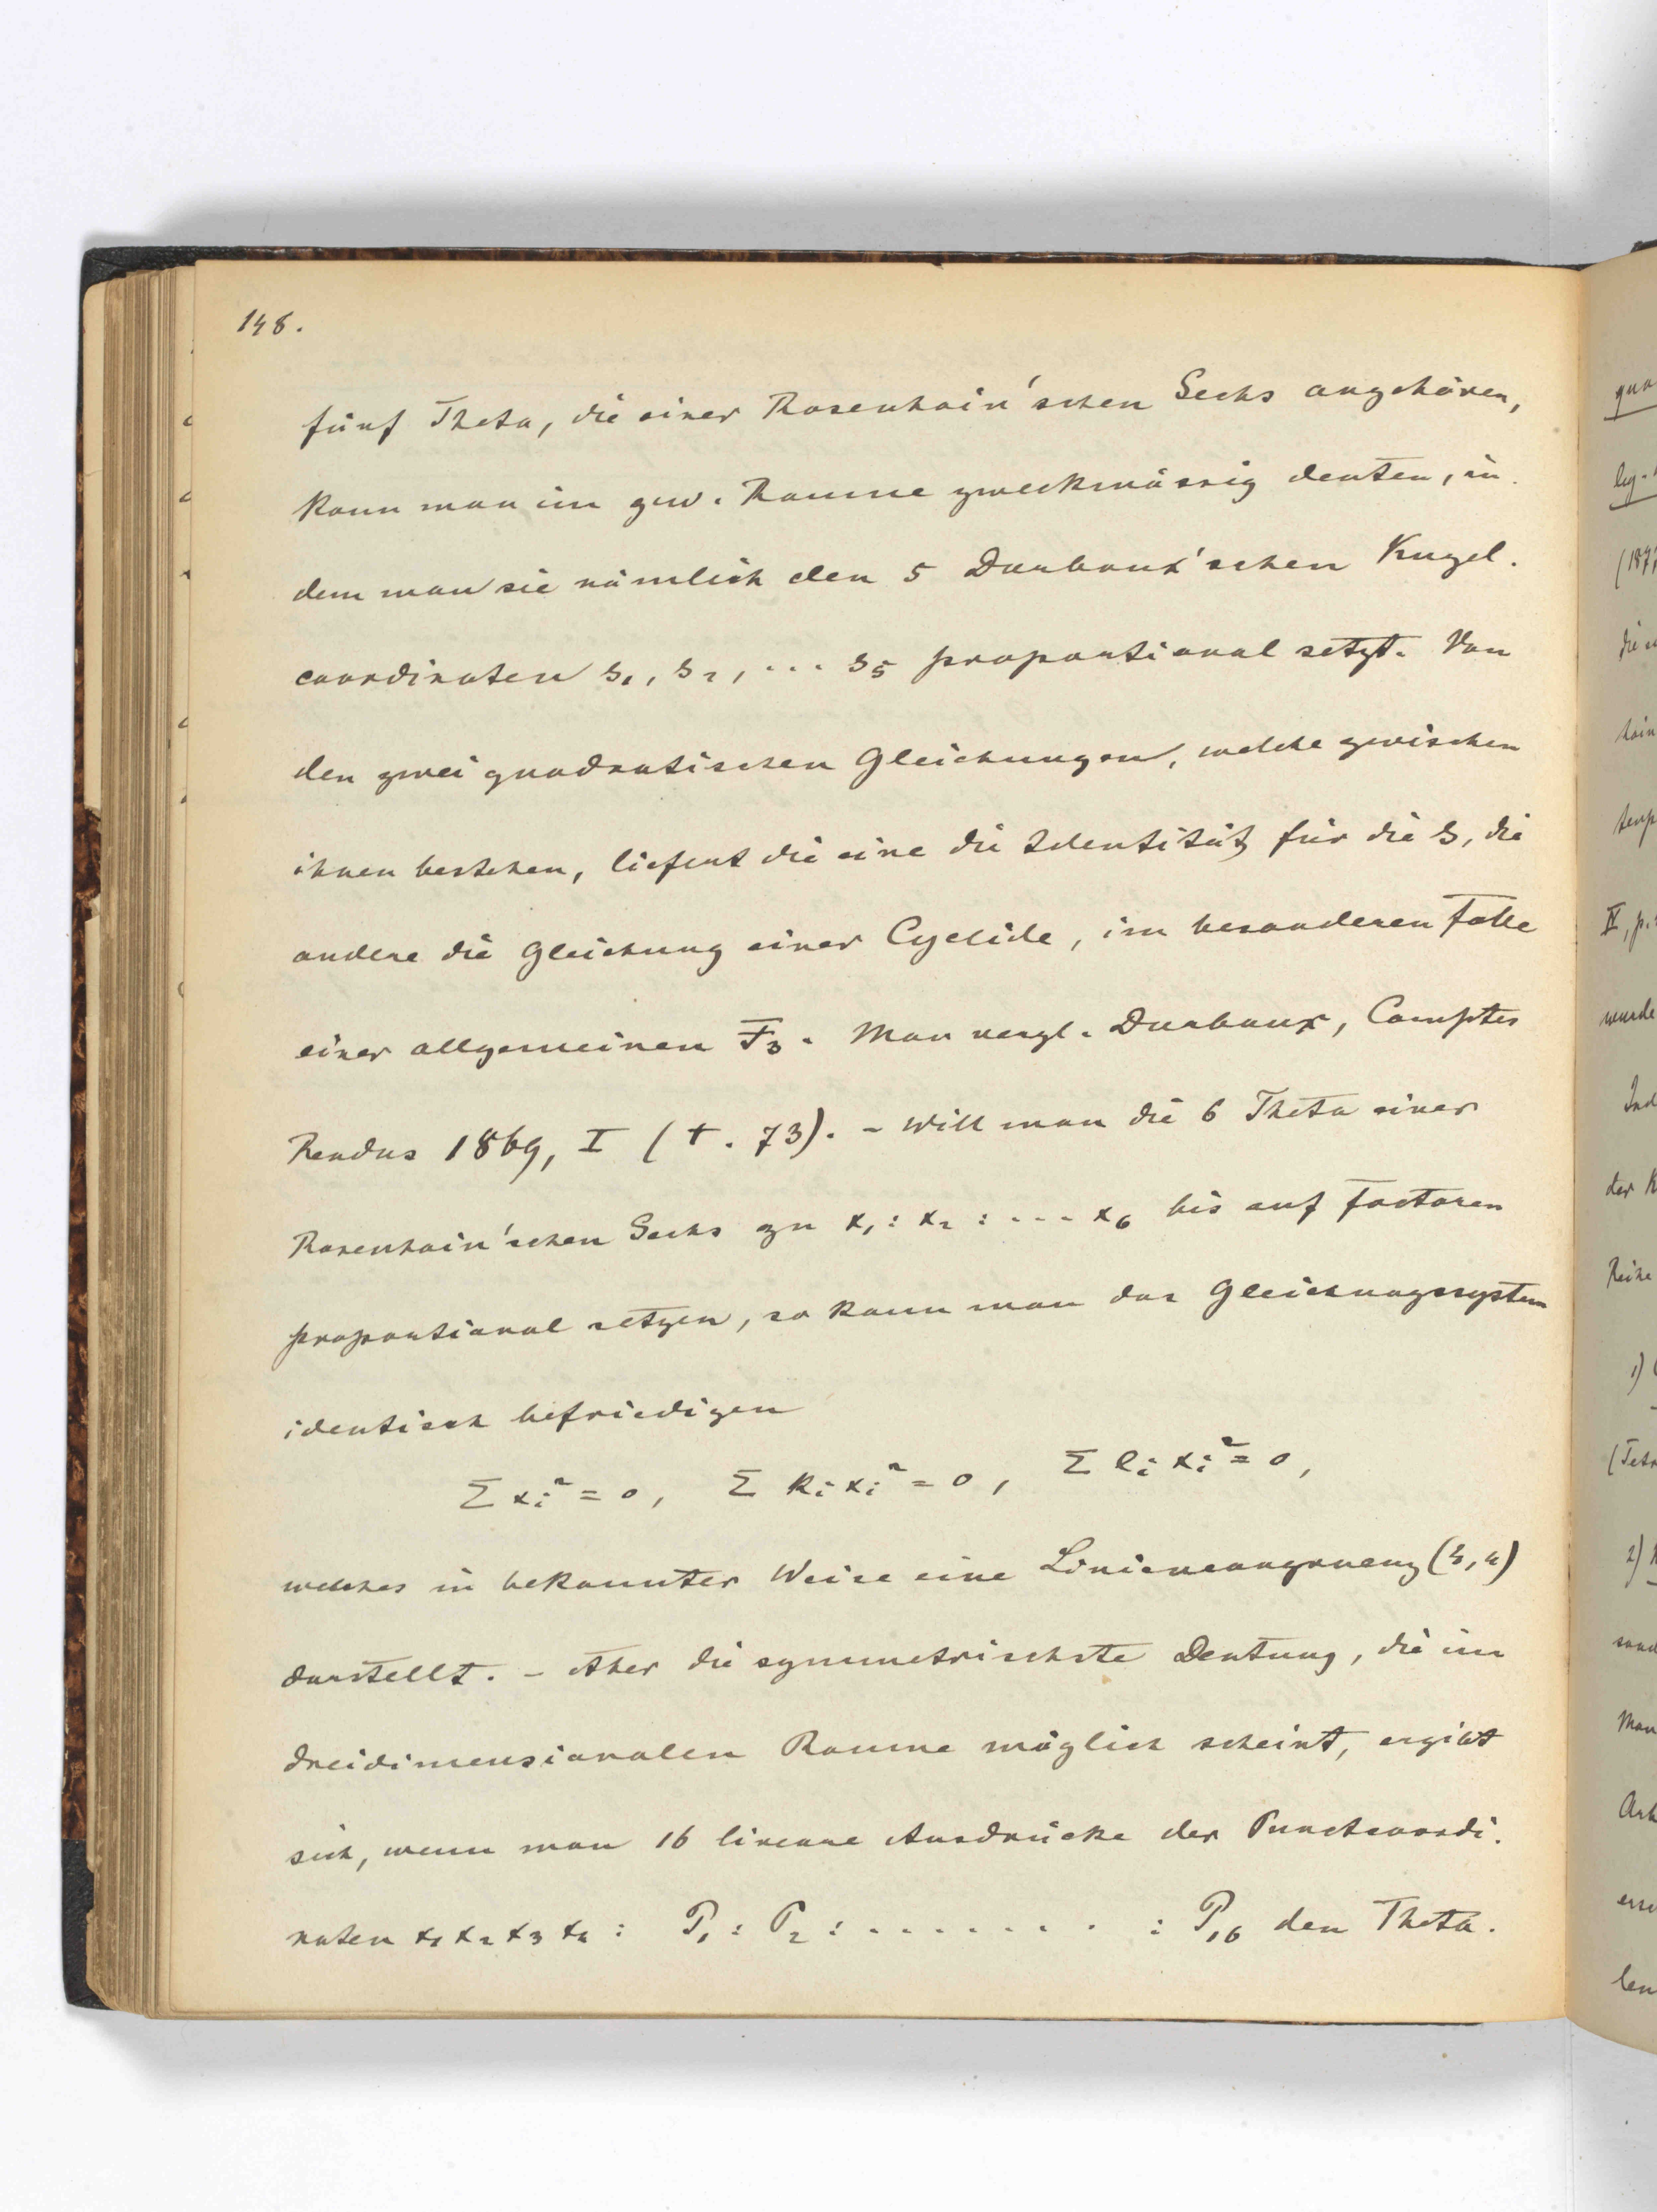 148.
fünf Theta, die einer Rosenhain'schen Sechs angehören,
kann man im gew. Raume zweckmässig deuten, in-
dem man sie nämlich den 5 Darboux'schen Kugel-
coordinaten s₁, s₂, ... s₅ proportional setzt. Von
den zwei quadratischen Gleichungen, welche zwischen
ihnen bestehen, liefert die eine die Identität für die s, die
andere die Gleichung einer Cyclide, im besonderen Falle
einer allgemeinen F₃. Man vergl. Darboux, Comptes
Rendus 1869, I (t. 73). - Will man die 6 Theta einer
Rosenhain'schen Sechs zu x₁ : x₂ : ... x₆ bis auf Factoren
proportional setzen, so kann man das Gleichungssystem
identisch befriedigen
Σ xᵢ² = 0, Σ kᵢ xᵢ² = 0, Σ lᵢ xᵢ² = 0,
welches in bekannter Weise eine Liniencongruenz (4, 4)
darstellt. - Aber die symmetrischste Deutung, die im
dreidimensionalen Raume möglich scheint, ergibt
sich, wenn man 16 lineare Ausdrücke der Punctcoordi-
naten x₁ x₂ x₃ x₄ : P₁ : P₂ : . . . . . . . . : P₁₆ den Theta-